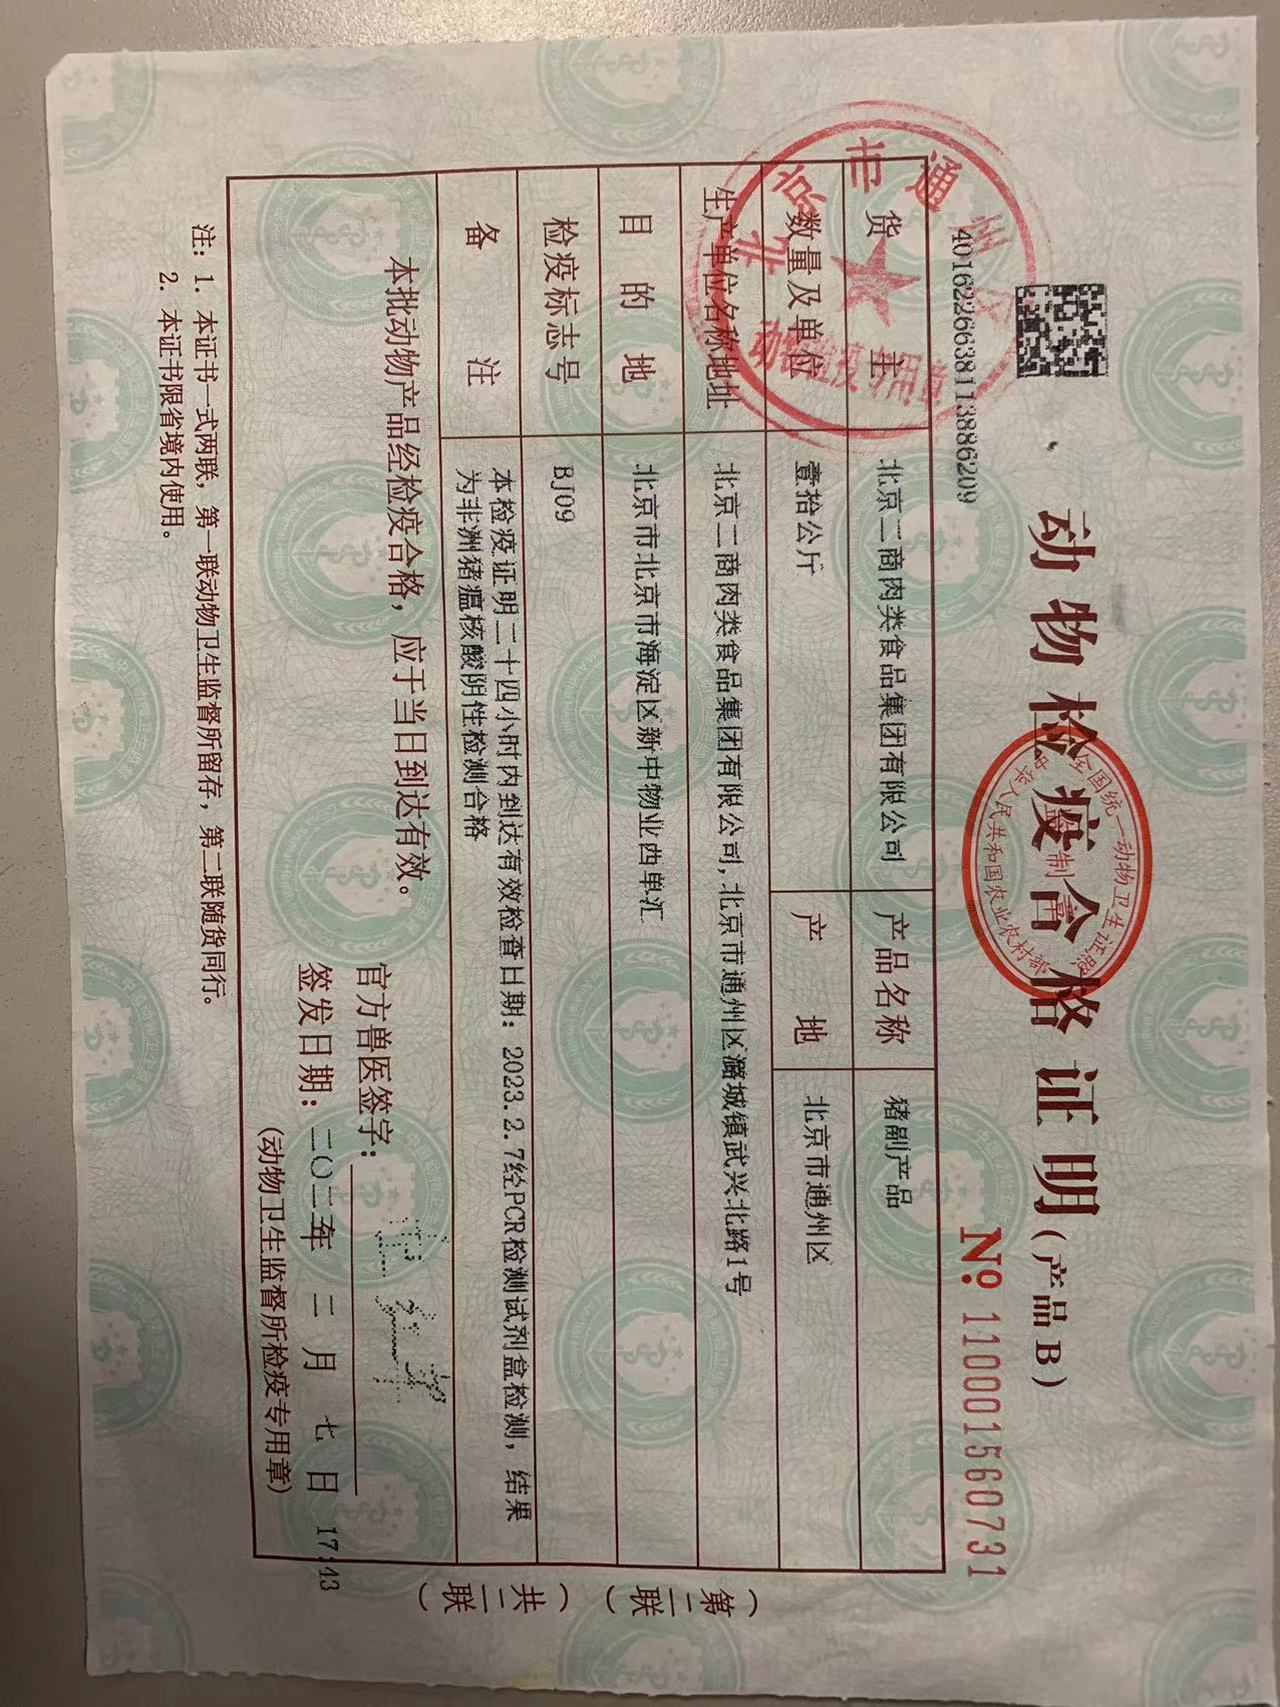 4016226638113886209
动物检疫合格证明(产品B)
№ 1100015607​31
全国统一动物卫生证照
监制章
中华人民共和国农业农村部
北京市通州区
动物检疫专用章
货 主 北京二商肉类食品集团有限公司 产品名称 猪副产品
数量及单位 壹拾公斤 产 地 北京市通州区
生产单位名称地址 北京二商肉类食品集团有限公司,北京市通州区潞城镇武兴北路1号
目 的 地 北京市北京市海淀区新中物业西单汇
检疫标志号 BJ09
备 注 本检疫证明二十四小时内到达有效检查日期:2023.2.7经PCR检测试剂盒检测,结果
为非洲猪瘟核酸阴性检测合格
本批动物产品经检疫合格,应于当日到达有效。
官方兽医签字:
签发日期:二〇二三年 二 月 七 日 17:43
(动物卫生监督所检疫专用章)
(第二联)
(共二联)
注:1. 本证书一式两联,第一联动物卫生监督所留存,第二联随货同行。
2. 本证书限省境内使用。